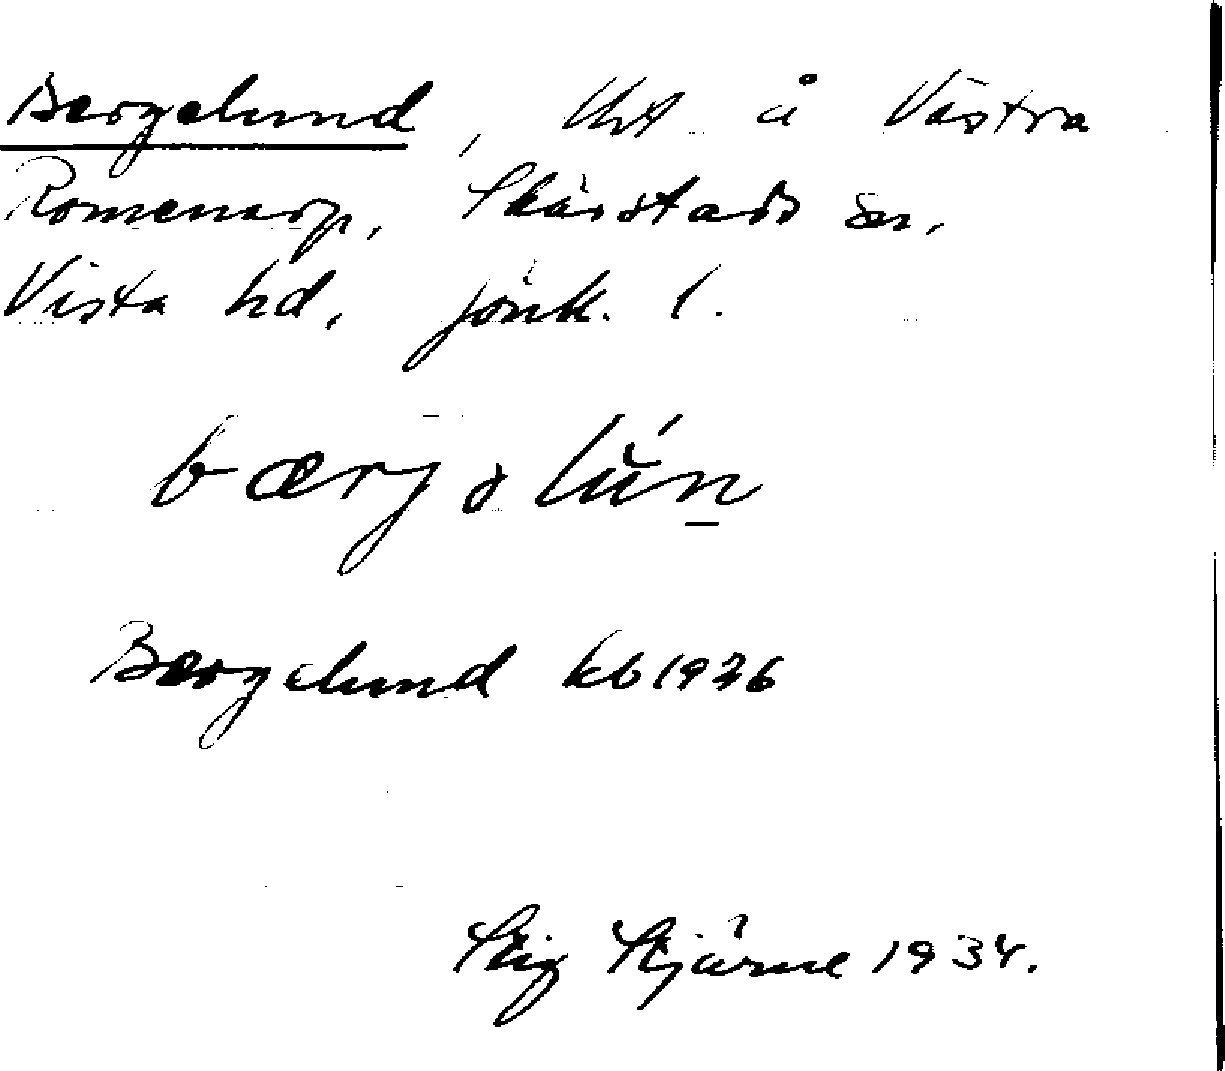 Bergelund, Uht å Västra
Romenarp, Skärstads sn,
Vista hd, Jönk. l.
bærjəlùn
Bergelund kb 1926
Stig Stjärne 1934.